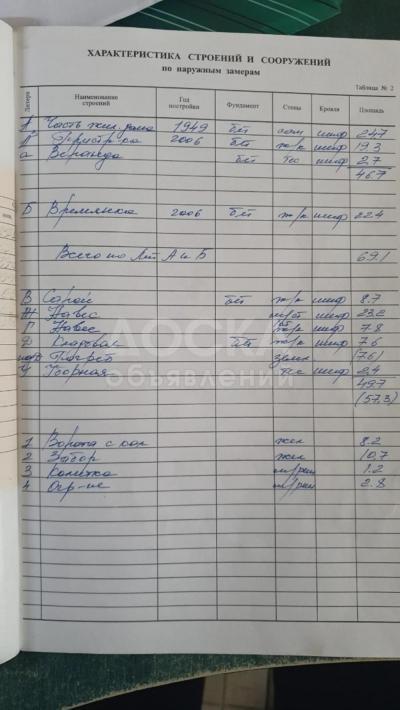 ХАРАКТЕРИСТИКА СТРОЕНИЙ И СООРУЖЕНИЙ
по наружным замерам
Таблица № 2
Литера Наименование строений Год постройки Фундамент Стены Кровля Площадь
А Часть жил. дома 1949 б/т сам шиф 24.7
А' Пристр-ка 2006 б/т ж/к шиф 19.3
а Веранда б/т тес шиф 2.7
46.7
Б Времянка 2006 б/т ж/к шиф 22.4
Всего по Лит А и Б 69.1
В Сарай б/т ж/к шиф 8.7
Ж Навес шиф 23.2
Г Навес ж/к шиф 7.8
Д Кладовая б/т ж/к шиф 7.6
Погреб земл (7.6)
У Уборная тес шиф 2.4
49.7
(57.3)
1 Ворота с кал жел 8.2
2 Забор жел 10.7
3 Калитка м/реш 1.2
4 Огр-ие м/реш 2.8
ДОСКА
объявлений